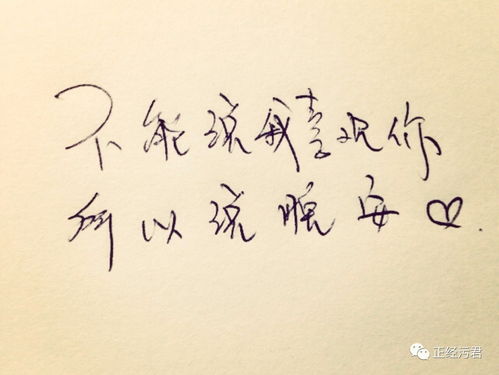 不能说我喜欢你
所以说晚安♡.
正经污君